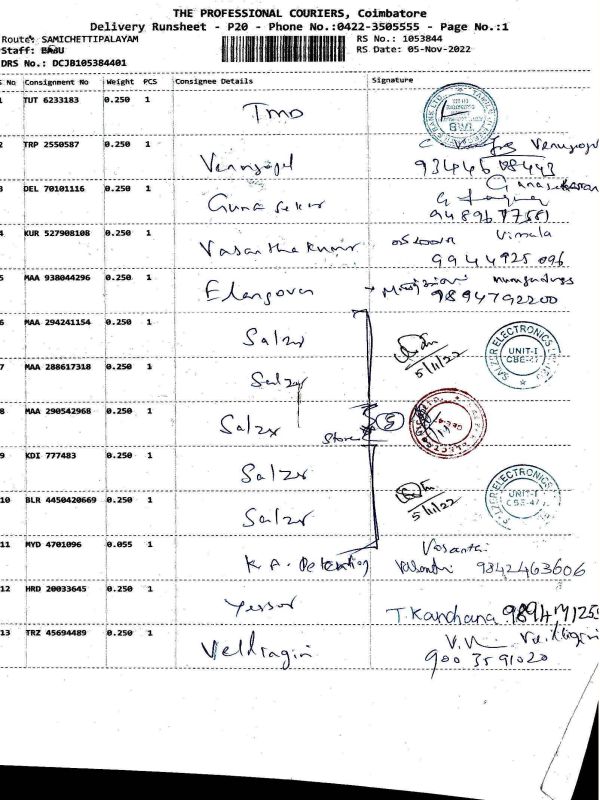 THE PROFESSIONAL COURIERS, Coimbatore
Delivery Runsheet - P20 - Phone No.:0422-3505555 - Page No.:1
Route: SAMICHETTIPALAYAM
RS No.: 1053844
Staff: BABU
RS Date: 05-Nov-2022
DRS No.: DCJB105384401
S No Consignment No Weight PCS Consignee Details Signature
1 TUT 6233183 0.250 1 Tmo
2 TRP 2550587 0.250 1 Venugopal Venugopal
3 DEL 70101116 0.250 1 Guna sekar Gunasekaran
4 KUR 527908108 0.250 1 Vasanthakumar Vimala
9944925 096
5 MAA 938044296 0.250 1 Elangovan
9894792200
6 MAA 294241154 0.250 1 Salzer 5/11/22 SALZER ELECTRONICS LIMITED UNIT-I CBE-47
7 MAA 288617318 0.250 1 Salzer
8 MAA 290542968 0.250 1 Salzer Store 5
9 KDI 777483 0.250 1 Salzer
10 BLR 4450420669 0.250 1 Salzer 5/11/22 SALZER ELECTRONICS UNIT-I CBE-47
11 MYD 4701096 0.055 1 K.A. Vasanthi
Vasanthi 9842463606
12 HRD 20033645 0.250 1 T. Kanchana
13 TRZ 45694489 0.250 1 V.N.
900 3591020